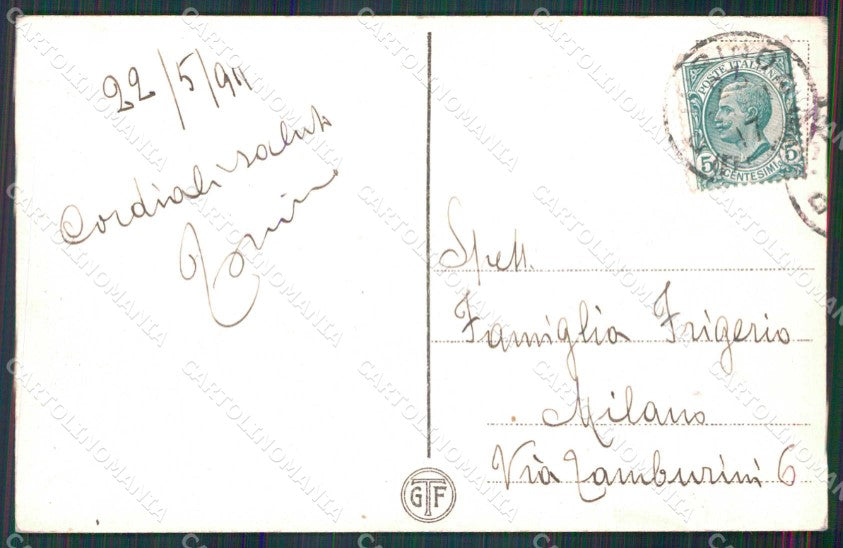 22/5/911
Cordiali saluti
POSTE ITALIANE
5 CENTESIMI 5
Spett.
Famiglia Frigerio
Milano
Via Tamburini 6
GTF
CARTOLINOMANIA